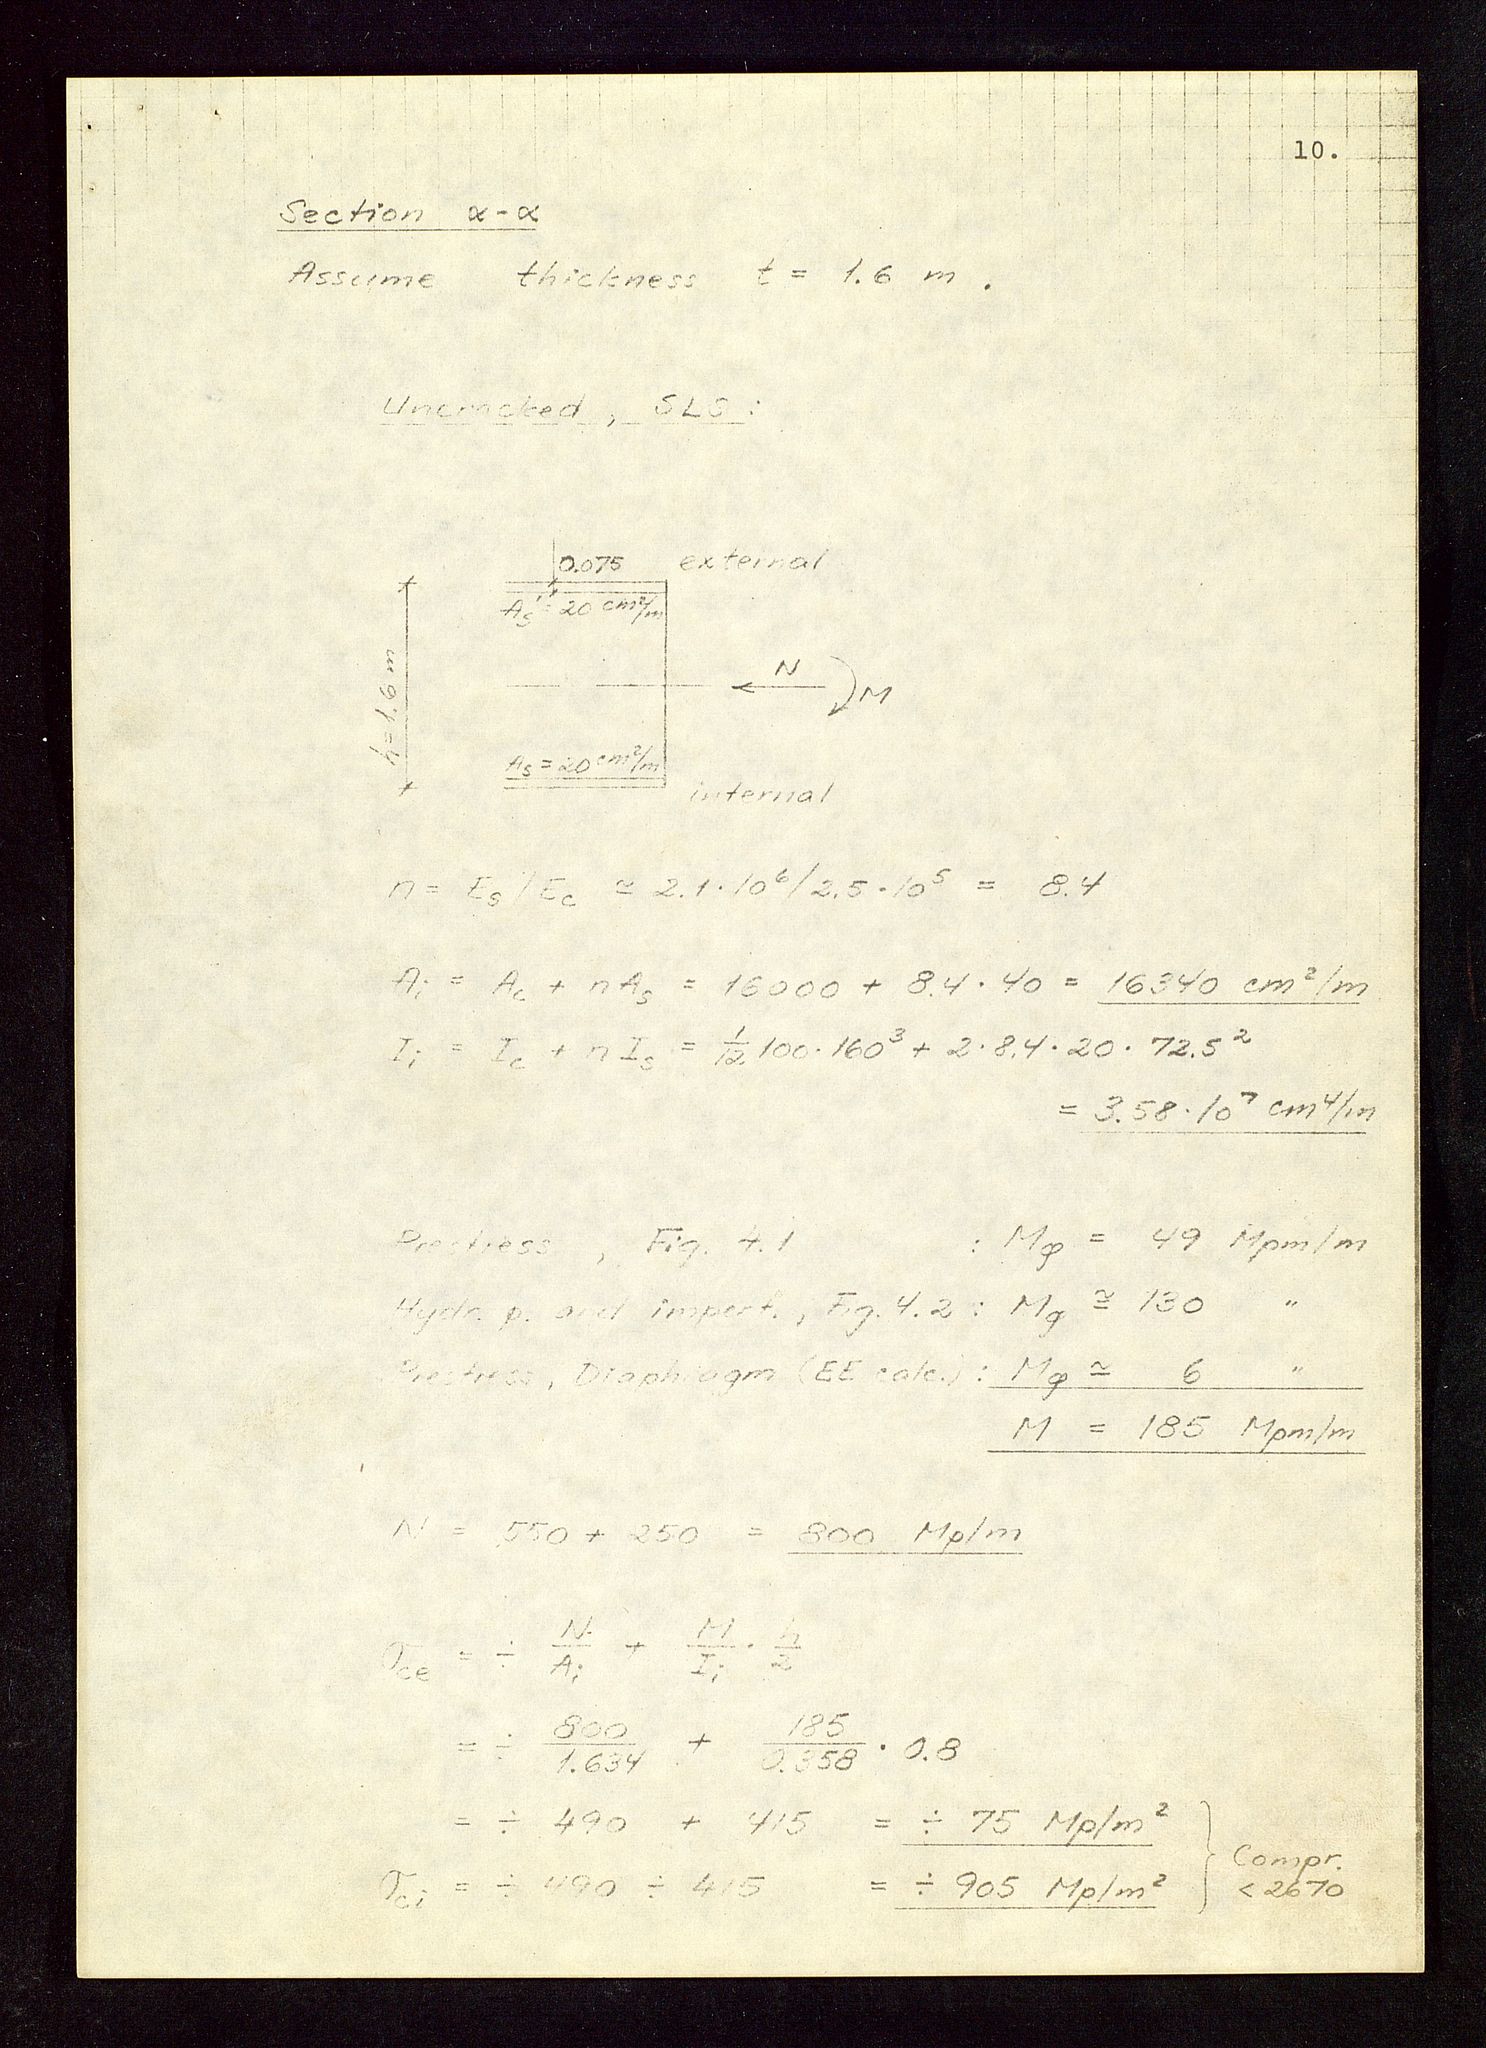 10.
Section α-α
Assume thickness t = 1.6 m.
Uncracked, SLS:
0.075 external
As' = 20 cm²/m
h = 1.6 m
N
M
As = 20 cm²/m
internal
n = Es/Ec ≃ 2.1·10⁶/2.5·10⁵ = 8.4
Ai = Ac + nAs = 16000 + 8.4·40 = 16340 cm²/m
Ii = Ic + nIs = 1/12 100·160³ + 2·8.4·20·72.5²
= 3.58·10⁷ cm⁴/m
Prestress, Fig. 4.1 : Mφ = 49 Mpm/m
Hydr. p. and imperf., Fig. 4.2 : Mφ ≅ 130 "
Prestress, Diaphragm (EE calc.) : Mφ ≃ 6 "
M = 185 Mpm/m
N = 550 + 250 = 800 Mp/m
σce = ÷ N/Ai + M/Ii · h/2
= ÷ 800/1.634 + 185/0.358 · 0.8
= ÷ 490 + 415 = ÷ 75 Mp/m²
σci = ÷ 490 ÷ 415 = ÷ 905 Mp/m²
Compr.
< 2670